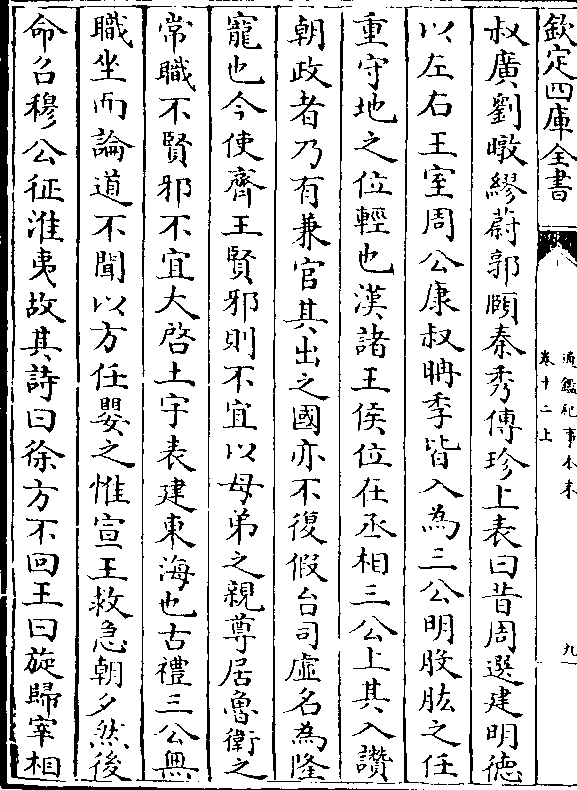 欽定四庫全書
通鑑紀事本末
卷十二上
九
叔廣劉暾繆蔚郭頤秦秀傅珍上表曰昔周選建明德
以左右王室周公康叔聃季皆入為三公明股肱之任
重守地之位輕也漢諸王侯位在丞相三公上其入讚
朝政者乃有兼官其出之國亦不復假台司虛名為隆
寵也今使齊王賢邪則不宜以母弟之親尊居魯衛之
常職不賢邪不宜大啓土宇表建東海也古禮三公無
職坐而論道不聞以方任嬰之惟宣王救急朝夕然後
命召穆公征淮夷故其詩曰徐方不回王曰旋歸宰相